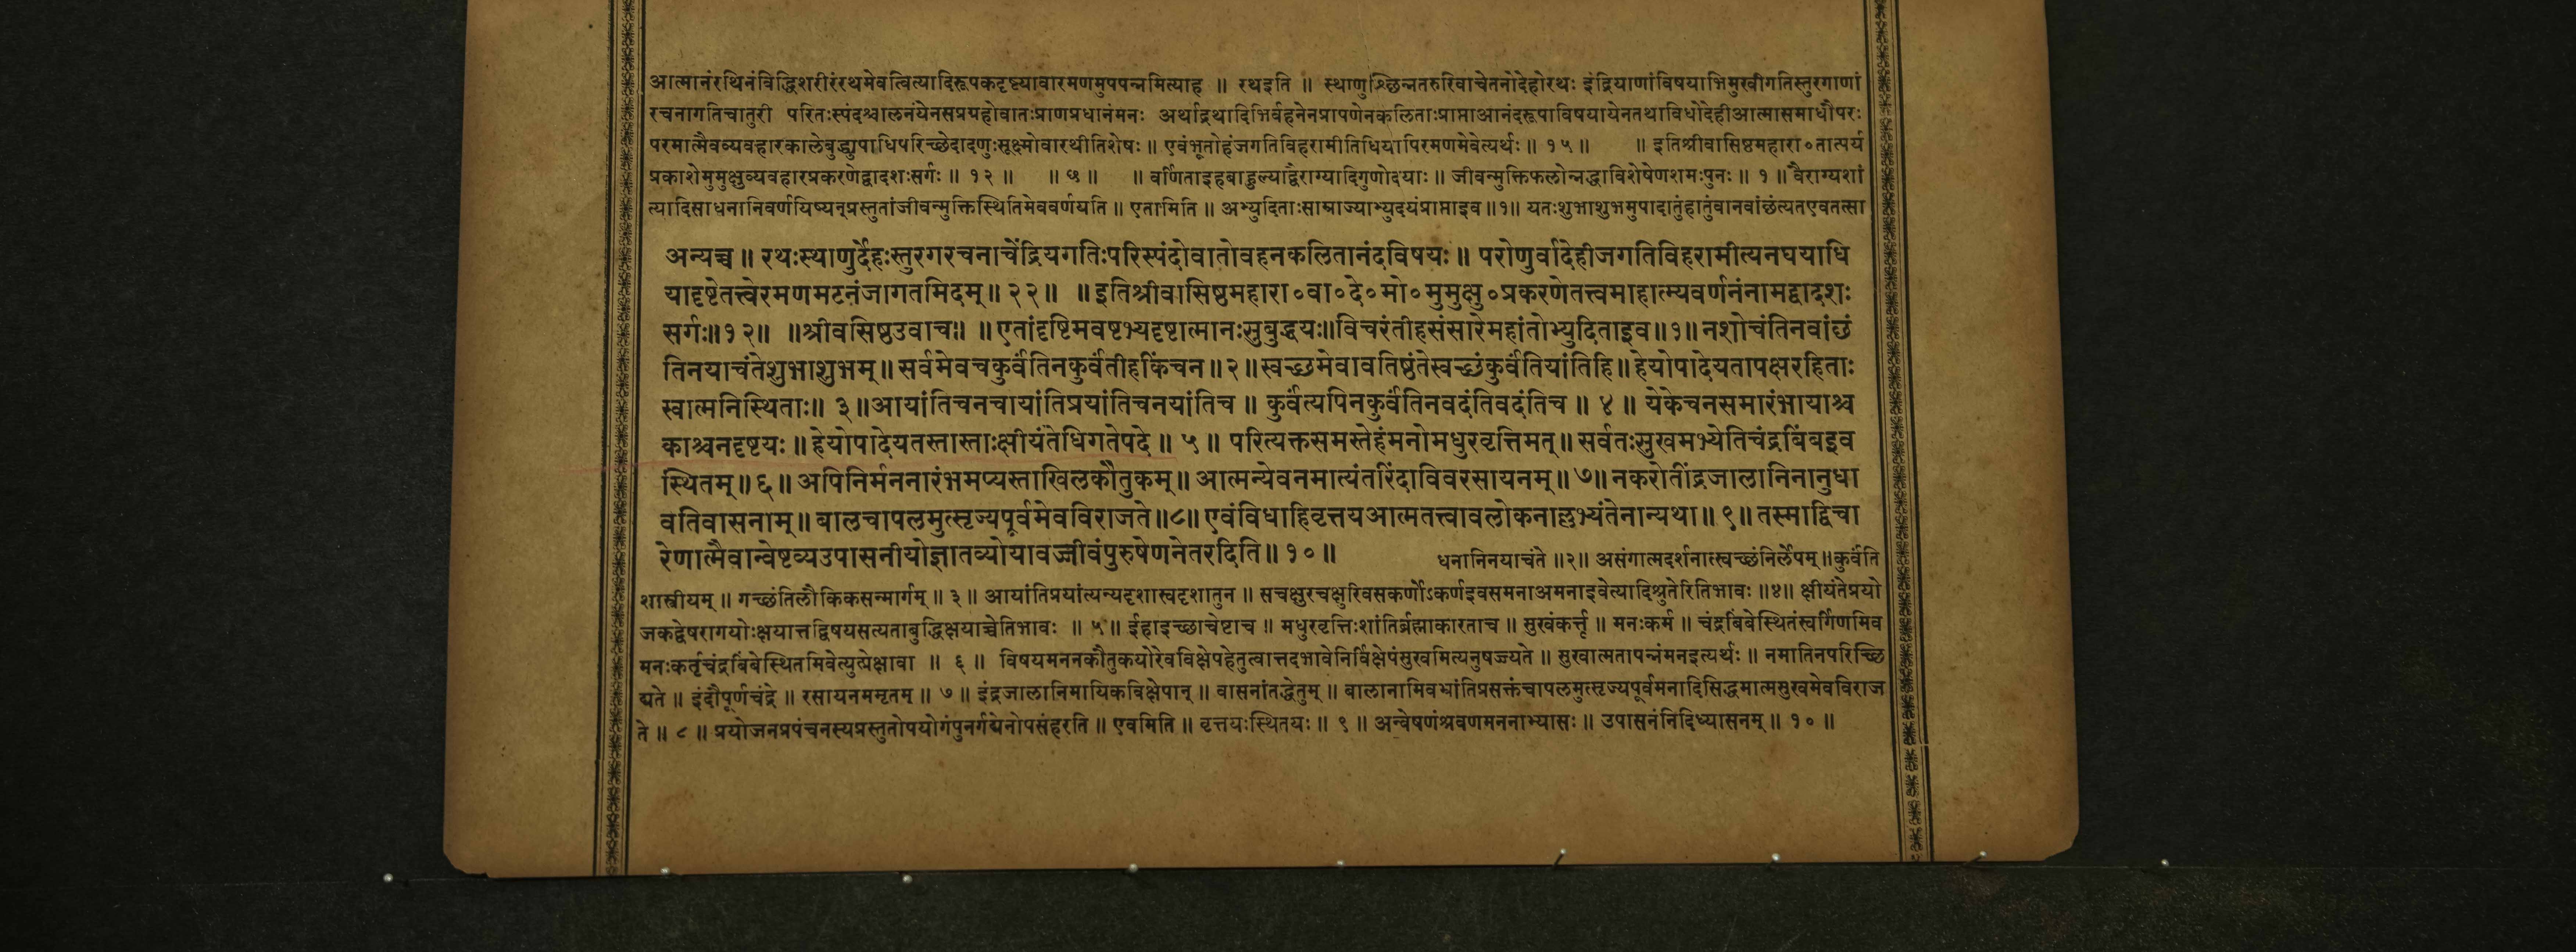 आत्मानंरथिनंविद्धिशरीरंरथमेवत्वित्यादिरूपकदृष्ट्यावारमणमुपपन्नमित्याह ॥ रथइति ॥ स्थाणुश्छिन्नतरुरिवाचेतनोदेहोरथः इंद्रियाणांविषयाभिमुखीगतिस्तुरगाणां
रचनागतिचातुरी परितःस्पंदश्चालनंयेनसप्रग्रहोवातःप्राणप्रधानंमनः अर्थाद्रथादिभिर्वहनेनप्रापणेनकलिताःप्राप्ताआनंदरूपाविषयायेनतथाविधोदेहीआत्मासमाधौपरः
परमात्मैवव्यवहारकालेबुद्ध्युपाधिपरिच्छेदादणुःसूक्ष्मोवारथीतिशेषः ॥ एवंभूतोहंजगतिविहरामीतिधियापिरमणमेवेत्यर्थः ॥ १५ ॥ ॥ इतिश्रीवासिष्ठमहारा०तात्पर्य
प्रकाशेमुमुक्षुव्यवहारप्रकरणेद्वादशःसर्गः ॥ १२ ॥ ॥ ७५ ॥ ॥ वर्णिताइहबाहुल्याद्वैराग्यादिगुणोदयाः ॥ जीवन्मुक्तिफलोन्नद्धाविशेषेणशमःपुनः ॥ १ ॥ वैराग्यशां
त्यादिसाधनानिवर्णयिष्यन्प्रस्तुतांजीवन्मुक्तिस्थितिमेववर्णयति ॥ एतामिति ॥ अभ्युदिताःसाम्राज्याभ्युदयंप्राप्ताइव ॥१॥ यतःशुभाशुभमुपादातुंहातुंवानवांछंत्यतएवतत्सा
अन्यच्च ॥ रथःस्थाणुर्देहःस्तुरगरचनाचेंद्रियगतिःपरिस्पंदोवातोवहनकलितानंदविषयः ॥ परोणुर्वादेहीजगतिविहरामीत्यनघयाधि
यादृष्टेतत्त्वेरमणमटनंजागतमिदम् ॥ २२ ॥ ॥ इतिश्रीवासिष्ठमहारा०वा०दे०मो०मुमुक्षु०प्रकरणेतत्त्वमाहात्म्यवर्णनंनामद्वादशः
सर्गः॥१२॥ ॥श्रीवसिष्ठउवाच॥ ॥एतांदृष्टिमवष्टभ्यदृष्टात्मानःसुबुद्धयः॥विचरंतीहसंसारेमहांतोभ्युदिताइव॥१॥नशोचंतिनवांछं
तिनयाचंतेशुभाशुभम् ॥ सर्वमेवचकुर्वंतिनकुर्वंतीहकिंचन ॥ २ ॥ स्वच्छमेवावतिष्ठंतेस्वच्छंकुर्वंतियांतिहि ॥ हेयोपादेयतापक्षरहिताः
स्वात्मनिस्थिताः॥ ३ ॥आयांतिचनचायांतिप्रयांतिचनयांतिच ॥ कुर्वंत्यपिनकुर्वंतिनवदंतिवदंतिच ॥ ४ ॥ येकेचनसमारंभायाश्च
काश्चनदृष्टयः ॥ हेयोपादेयतस्तास्ताःक्षीयंतेधिगतेपदे ॥ ५ ॥ परित्यक्तसमस्तेहंमनोमधुरवृत्तिमत् ॥ सर्वतःसुखमभ्येतिचंद्रबिंबइव
स्थितम् ॥ ६ ॥ अपिनिर्मननारंभमप्यस्ताखिलकौतुकम् ॥ आत्मन्येवनमात्यंतरिंदाविवरसायनम् ॥ ७ ॥ नकरोतींद्रजालानिनानुधा
वतिवासनाम् ॥ बालचापलमुत्सृज्यपूर्वमेवविराजते ॥८॥ एवंविधाहिवृत्तयआत्मतत्त्वावलोकनाल्लभ्यंतेनान्यथा ॥ ९ ॥ तस्माद्विचा
रेणात्मैवान्वेष्टव्यउपासनीयोज्ञातव्योयावज्जीवंपुरुषेणनेतरदिति ॥ १० ॥ धनानिनयाचंते ॥२॥ असंगात्मदर्शनात्स्वच्छंनिर्लेपम् ॥कुर्वंति
शास्त्रीयम् ॥ गच्छंतिलौकिकसन्मार्गम् ॥ ३ ॥ आयांतिप्रयांत्यन्यदृशास्वदृशातुन ॥ सचक्षुरचक्षुरिवसकर्णोऽकर्णइवसमनाअमनाइवेत्यादिश्रुतेरितिभावः ॥४॥ क्षीयंतेप्रयो
जकद्वेषरागयोःक्षयात्तद्विषयसत्यताबुद्धिक्षयाच्चेतिभावः ॥ ५ ॥ ईहाइच्छाचेष्टाच ॥ मधुरवृत्तिःशांतिर्ब्रह्माकारताच ॥ सुखंकर्तृ ॥ मनःकर्म ॥ चंद्रबिंबेस्थितंस्वर्गिणमिव
मनःकर्तृचंद्रबिंबेस्थितमिवेत्युत्प्रेक्षावा ॥ ६ ॥ विषयमननकौतुकयोरेवविक्षेपहेतुत्वात्तदभावेनिर्विक्षेपंसुखमित्यनुषज्ज्यते ॥ सुखात्मतापन्नंमनइत्यर्थः ॥ नमातिनपरिच्छि
द्यते ॥ इंदौपूर्णचंद्रे ॥ रसायनममृतम् ॥ ७ ॥ इंद्रजालानिमायिकविक्षेपान् ॥ वासनांतद्धेतुम् ॥ बालानामिवभ्रांतिप्रसक्तंचापलमुत्सृज्यपूर्वमनादिसिद्धमात्मसुखमेवविराज
ते ॥ ८ ॥ प्रयोजनप्रपंचनस्यप्रस्तुतोपयोगंपुनर्गद्येनोपसंहरति ॥ एवमिति ॥ वृत्तयःस्थितयः ॥ ९ ॥ अन्वेषणंश्रवणमननाभ्यासः ॥ उपासनंनिदिध्यासनम् ॥ १० ॥